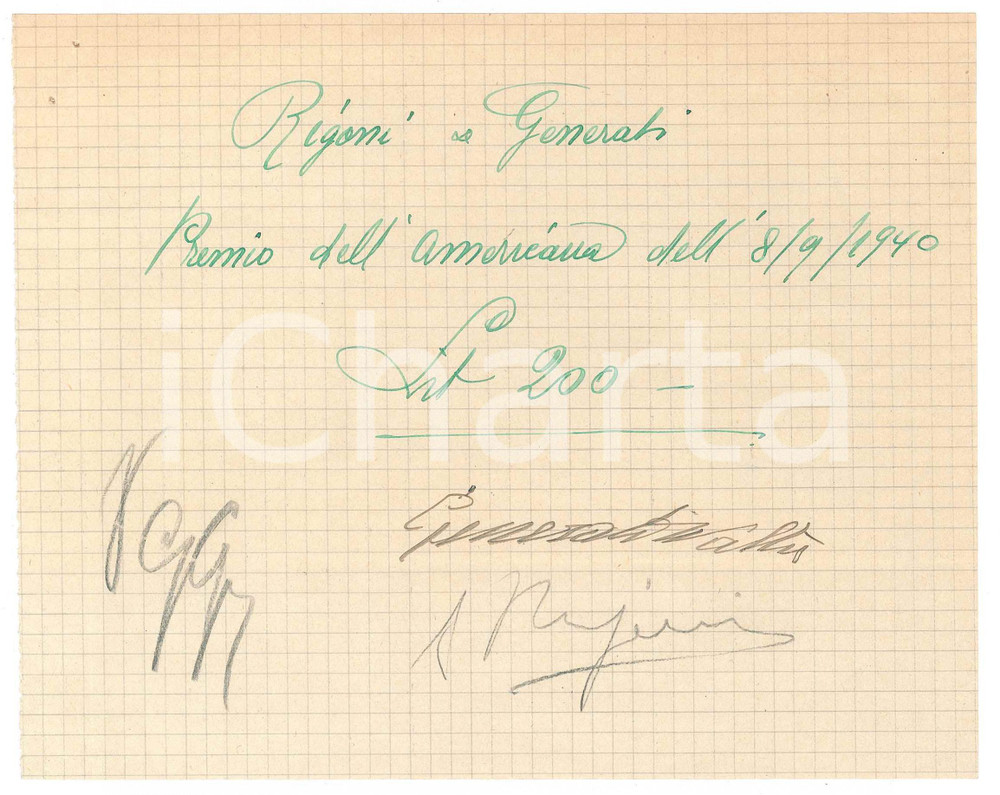 Rigoni e Generati
Premio dell'americana dell'8/9/1940
Lit 200 -
iCharta
Generati Vallì
Rigoni